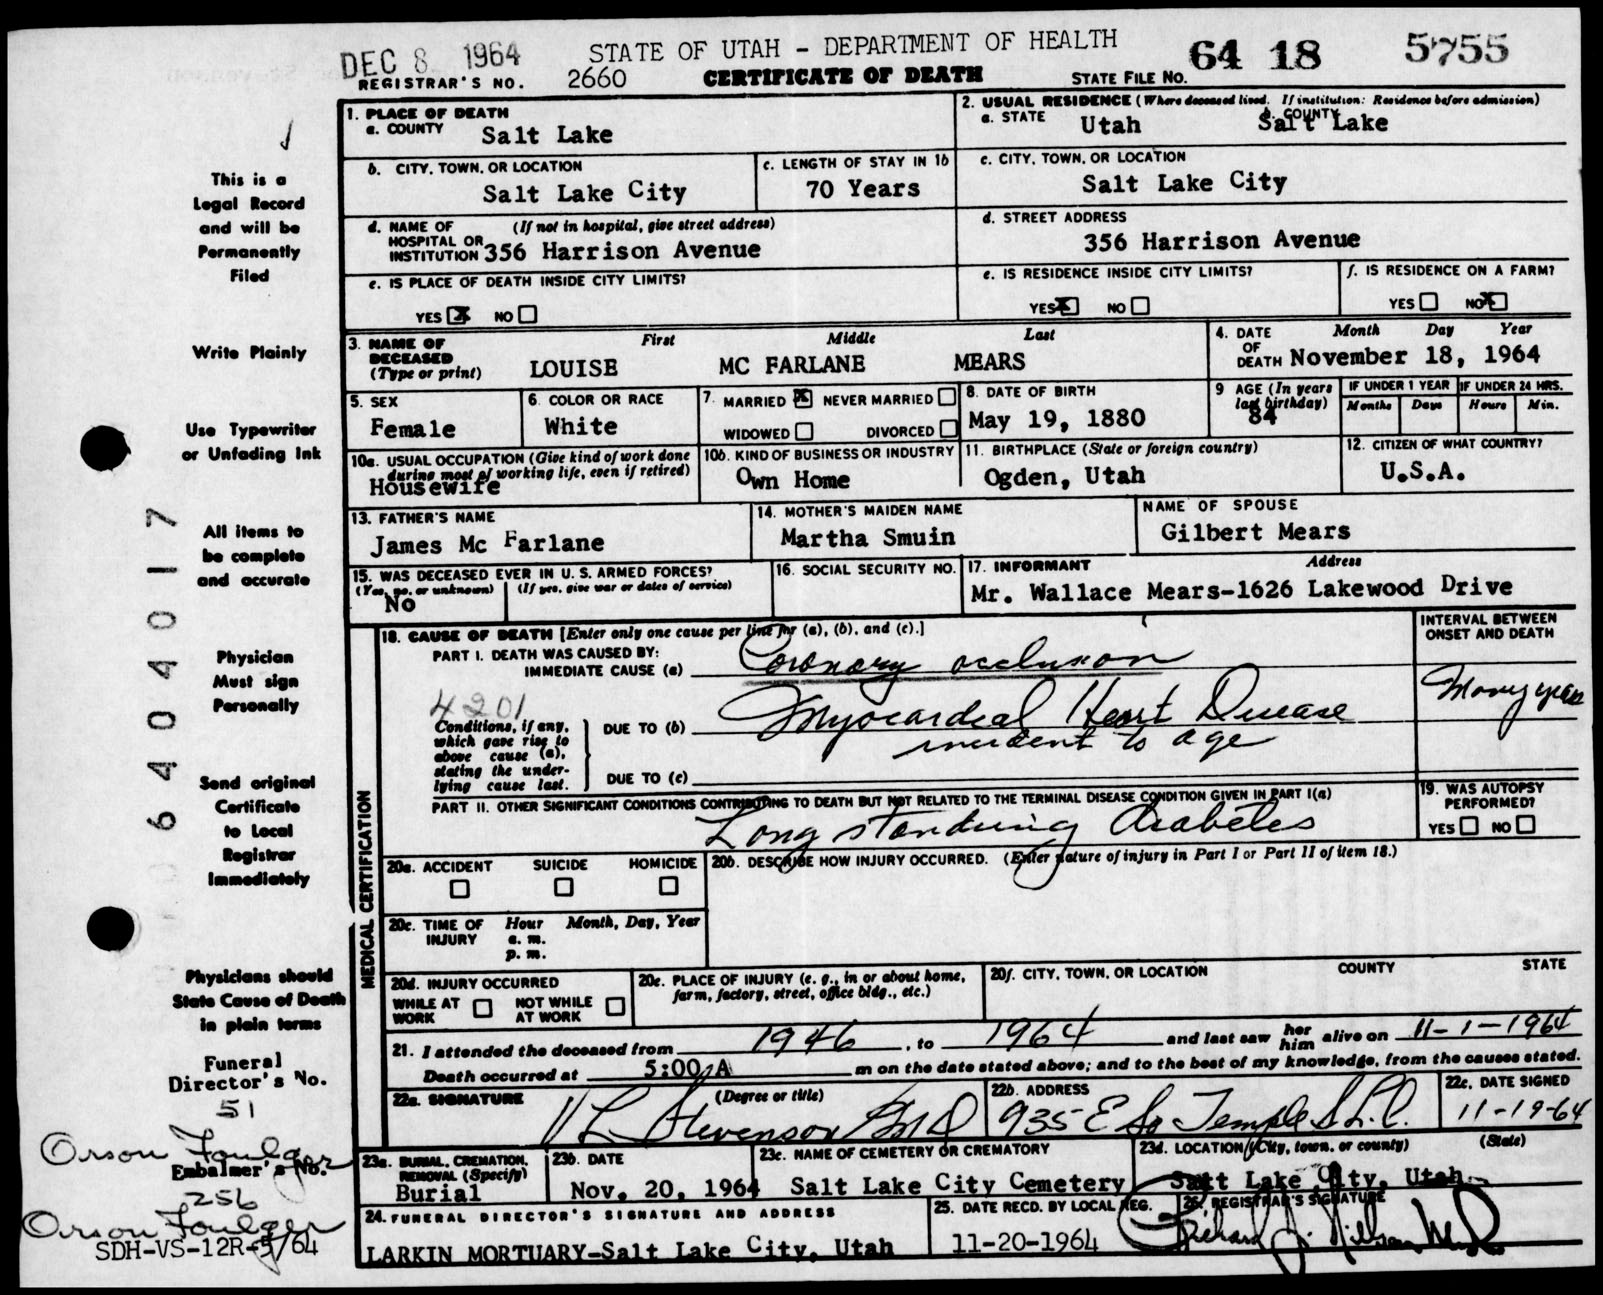 DEC 8 1964
STATE OF UTAH - DEPARTMENT OF HEALTH
64 18 5755
REGISTRAR'S NO. 2660
CERTIFICATE OF DEATH
STATE FILE NO.
This is a
Legal Record
and will be
Permanently
Filed
Write Plainly
Use Typewriter
or Unfading Ink
All items to
be complete
and accurate
Physician
Must sign
Personally
Send original
Certificate
to Local
Registrar
Immediately
Physicians should
State Cause of Death
in plain terms
Funeral
Director's No.
51
Orson Foulger
Embalmer's No.
256
Orson Foulger
SDH-VS-12R-5/64
6404017
1. PLACE OF DEATH
a. COUNTY Salt Lake
2. USUAL RESIDENCE (Where deceased lived. If institution: Residence before admission)
a. STATE Utah b. COUNTY Salt Lake
b. CITY, TOWN, OR LOCATION Salt Lake City
c. LENGTH OF STAY IN 1b 70 Years
c. CITY, TOWN, OR LOCATION Salt Lake City
d. NAME OF HOSPITAL OR INSTITUTION (If not in hospital, give street address) 356 Harrison Avenue
d. STREET ADDRESS 356 Harrison Avenue
e. IS PLACE OF DEATH INSIDE CITY LIMITS?
YES X NO
e. IS RESIDENCE INSIDE CITY LIMITS?
YES X NO
f. IS RESIDENCE ON A FARM?
YES NO X
3. NAME OF DECEASED (Type or print) First Middle Last
LOUISE MC FARLANE MEARS
4. DATE OF DEATH Month Day Year
November 18, 1964
5. SEX Female
6. COLOR OR RACE White
7. MARRIED X NEVER MARRIED
WIDOWED DIVORCED
8. DATE OF BIRTH May 19, 1880
9 AGE (In years last birthday) 84
IF UNDER 1 YEAR Months Days
IF UNDER 24 HRS. Hours Min.
10a. USUAL OCCUPATION (Give kind of work done during most of working life, even if retired) Housewife
10b. KIND OF BUSINESS OR INDUSTRY Own Home
11. BIRTHPLACE (State or foreign country) Ogden, Utah
12. CITIZEN OF WHAT COUNTRY? U.S.A.
13. FATHER'S NAME James Mc Farlane
14. MOTHER'S MAIDEN NAME Martha Smuin
NAME OF SPOUSE Gilbert Mears
15. WAS DECEASED EVER IN U. S. ARMED FORCES?
(Yes, no, or unknown) (If yes, give war or dates of service)
No
16. SOCIAL SECURITY NO.
17. INFORMANT Address
Mr. Wallace Mears-1626 Lakewood Drive
MEDICAL CERTIFICATION
18. CAUSE OF DEATH [Enter only one cause per line for (a), (b), and (c).]
INTERVAL BETWEEN ONSET AND DEATH
PART I. DEATH WAS CAUSED BY:
IMMEDIATE CAUSE (a) Coronary occlusion
4201
Conditions, if any, which gave rise to above cause (a), stating the underlying cause last.
DUE TO (b) Myocardial Heart Disease
incident to age
Many years
DUE TO (c)
PART II. OTHER SIGNIFICANT CONDITIONS CONTRIBUTING TO DEATH BUT NOT RELATED TO THE TERMINAL DISEASE CONDITION GIVEN IN PART I(a)
Long standing Diabetes
19. WAS AUTOPSY PERFORMED?
YES NO
20a. ACCIDENT SUICIDE HOMICIDE
20b. DESCRIBE HOW INJURY OCCURRED. (Enter nature of injury in Part I or Part II of item 18.)
20c. TIME OF INJURY Hour Month, Day, Year
a. m.
p. m.
20d. INJURY OCCURRED
WHILE AT WORK NOT WHILE AT WORK
20e. PLACE OF INJURY (e. g., in or about home, farm, factory, street, office bldg., etc.)
20f. CITY, TOWN, OR LOCATION COUNTY STATE
21. I attended the deceased from 1946, to 1964 and last saw her him alive on 11-1-1964
Death occurred at 5:00 A m on the date stated above; and to the best of my knowledge, from the causes stated.
22a. SIGNATURE (Degree or title)
V L Stevenson MD
22b. ADDRESS
935 E So Temple S.L.C.
22c. DATE SIGNED
11-19-64
23a. BURIAL, CREMATION, REMOVAL (Specify) Burial
23b. DATE Nov. 20, 1964
23c. NAME OF CEMETERY OR CREMATORY Salt Lake City Cemetery
23d. LOCATION (City, town, or county) (State)
Salt Lake City, Utah
24. FUNERAL DIRECTOR'S SIGNATURE AND ADDRESS
LARKIN MORTUARY-Salt Lake City, Utah
25. DATE RECD. BY LOCAL REG.
11-20-1964
26. REGISTRAR'S SIGNATURE
Richard J. Nilsen M.D.